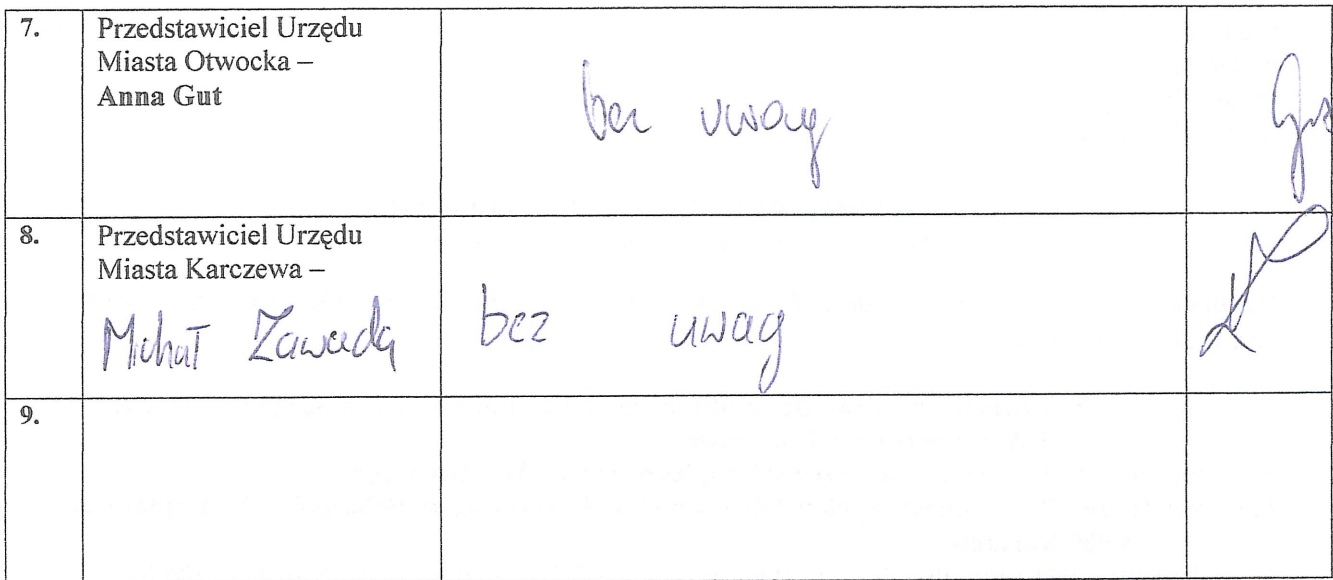 7.
Przedstawiciel Urzędu
Miasta Otwocka –
Anna Gut
bez uwag
8.
Przedstawiciel Urzędu
Miasta Karczewa –
Michał Zawada
bez uwag
9.